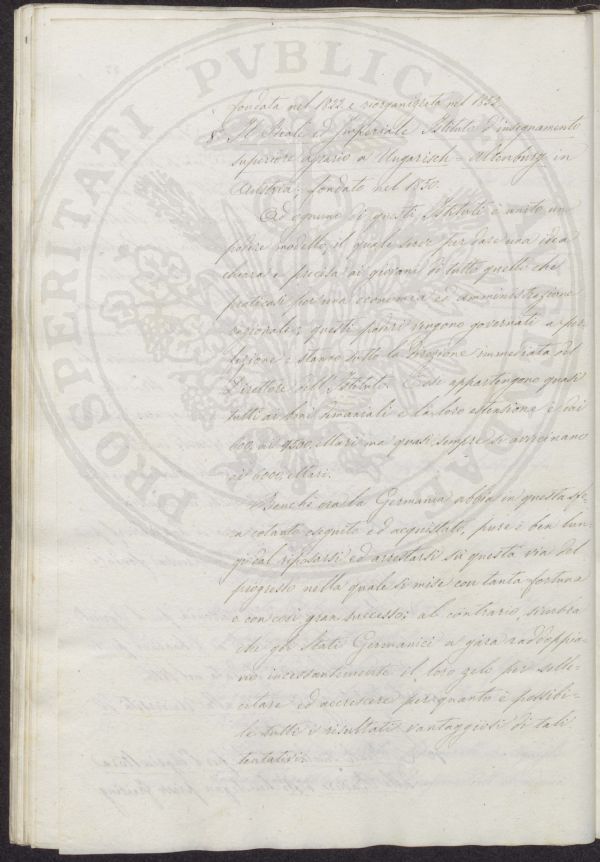 fondata nel 1822 e riorganizzata nel 1852
8. Il Reale ed Imperiale Istituto d'insegnamento
superiore agrario a Ungarisch-Altenburg in
Austria; fondato nel 1850.
Ad ognuno di questi Istituti è unito un
podere modello, il quale serve per dare una idea
chiara e precisa ai giovani di tutto quello che
praticasi per una economia ed amministrazione
razionale; questi poderi vengono governati a per-
fezione e stanno sotto la direzione immediata del
Direttore dell'Istituto. Essi appartengono quasi
tutti ai beni demaniali e la loro estensione è dai
600, ai ettari ma quasi sempre si avvicinano
ai 6000, ettari.
Benchè ora la Germania abbia in questa sfe-
ra cotanto eseguito ed acquistato, pure è ben lun-
gi dal riposarsi ed arrestarsi su questa via del
progresso nella quale si mise con tanta fortuna
e con così gran successo; al contrario, sembra
che gli Stati Germanici a gara raddoppia-
no incessantemente il loro zelo per solle-
citare ed accrescere per quanto è possibi-
le tutti i risultati vantaggiosi di tali
tentativi.
PROSPERITATI PVBLICAE